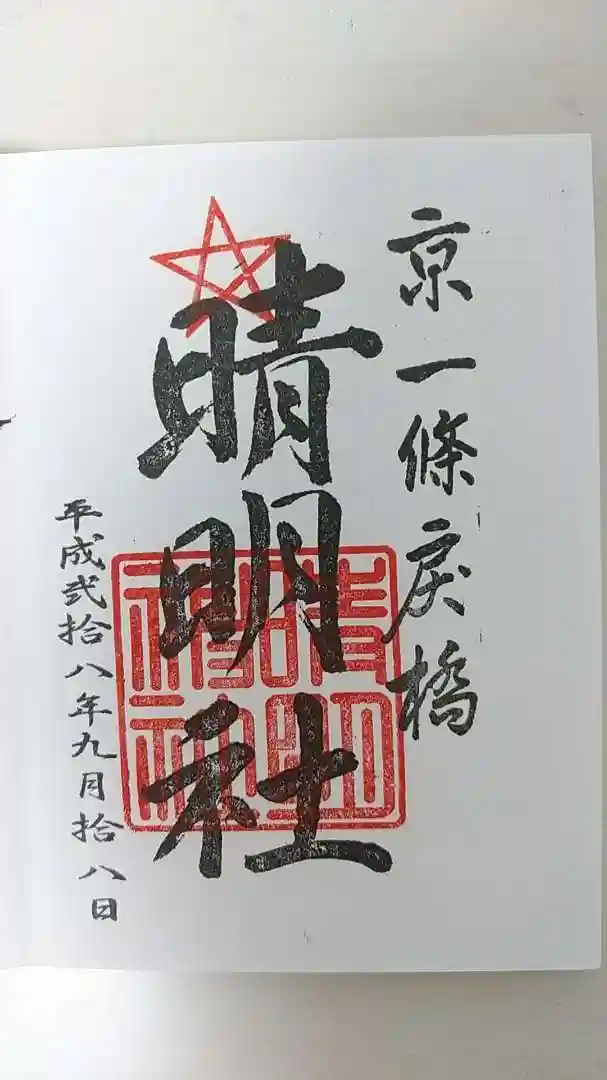 京一條戻橋
晴明社
晴明神社
平成弐拾八年九月拾八日